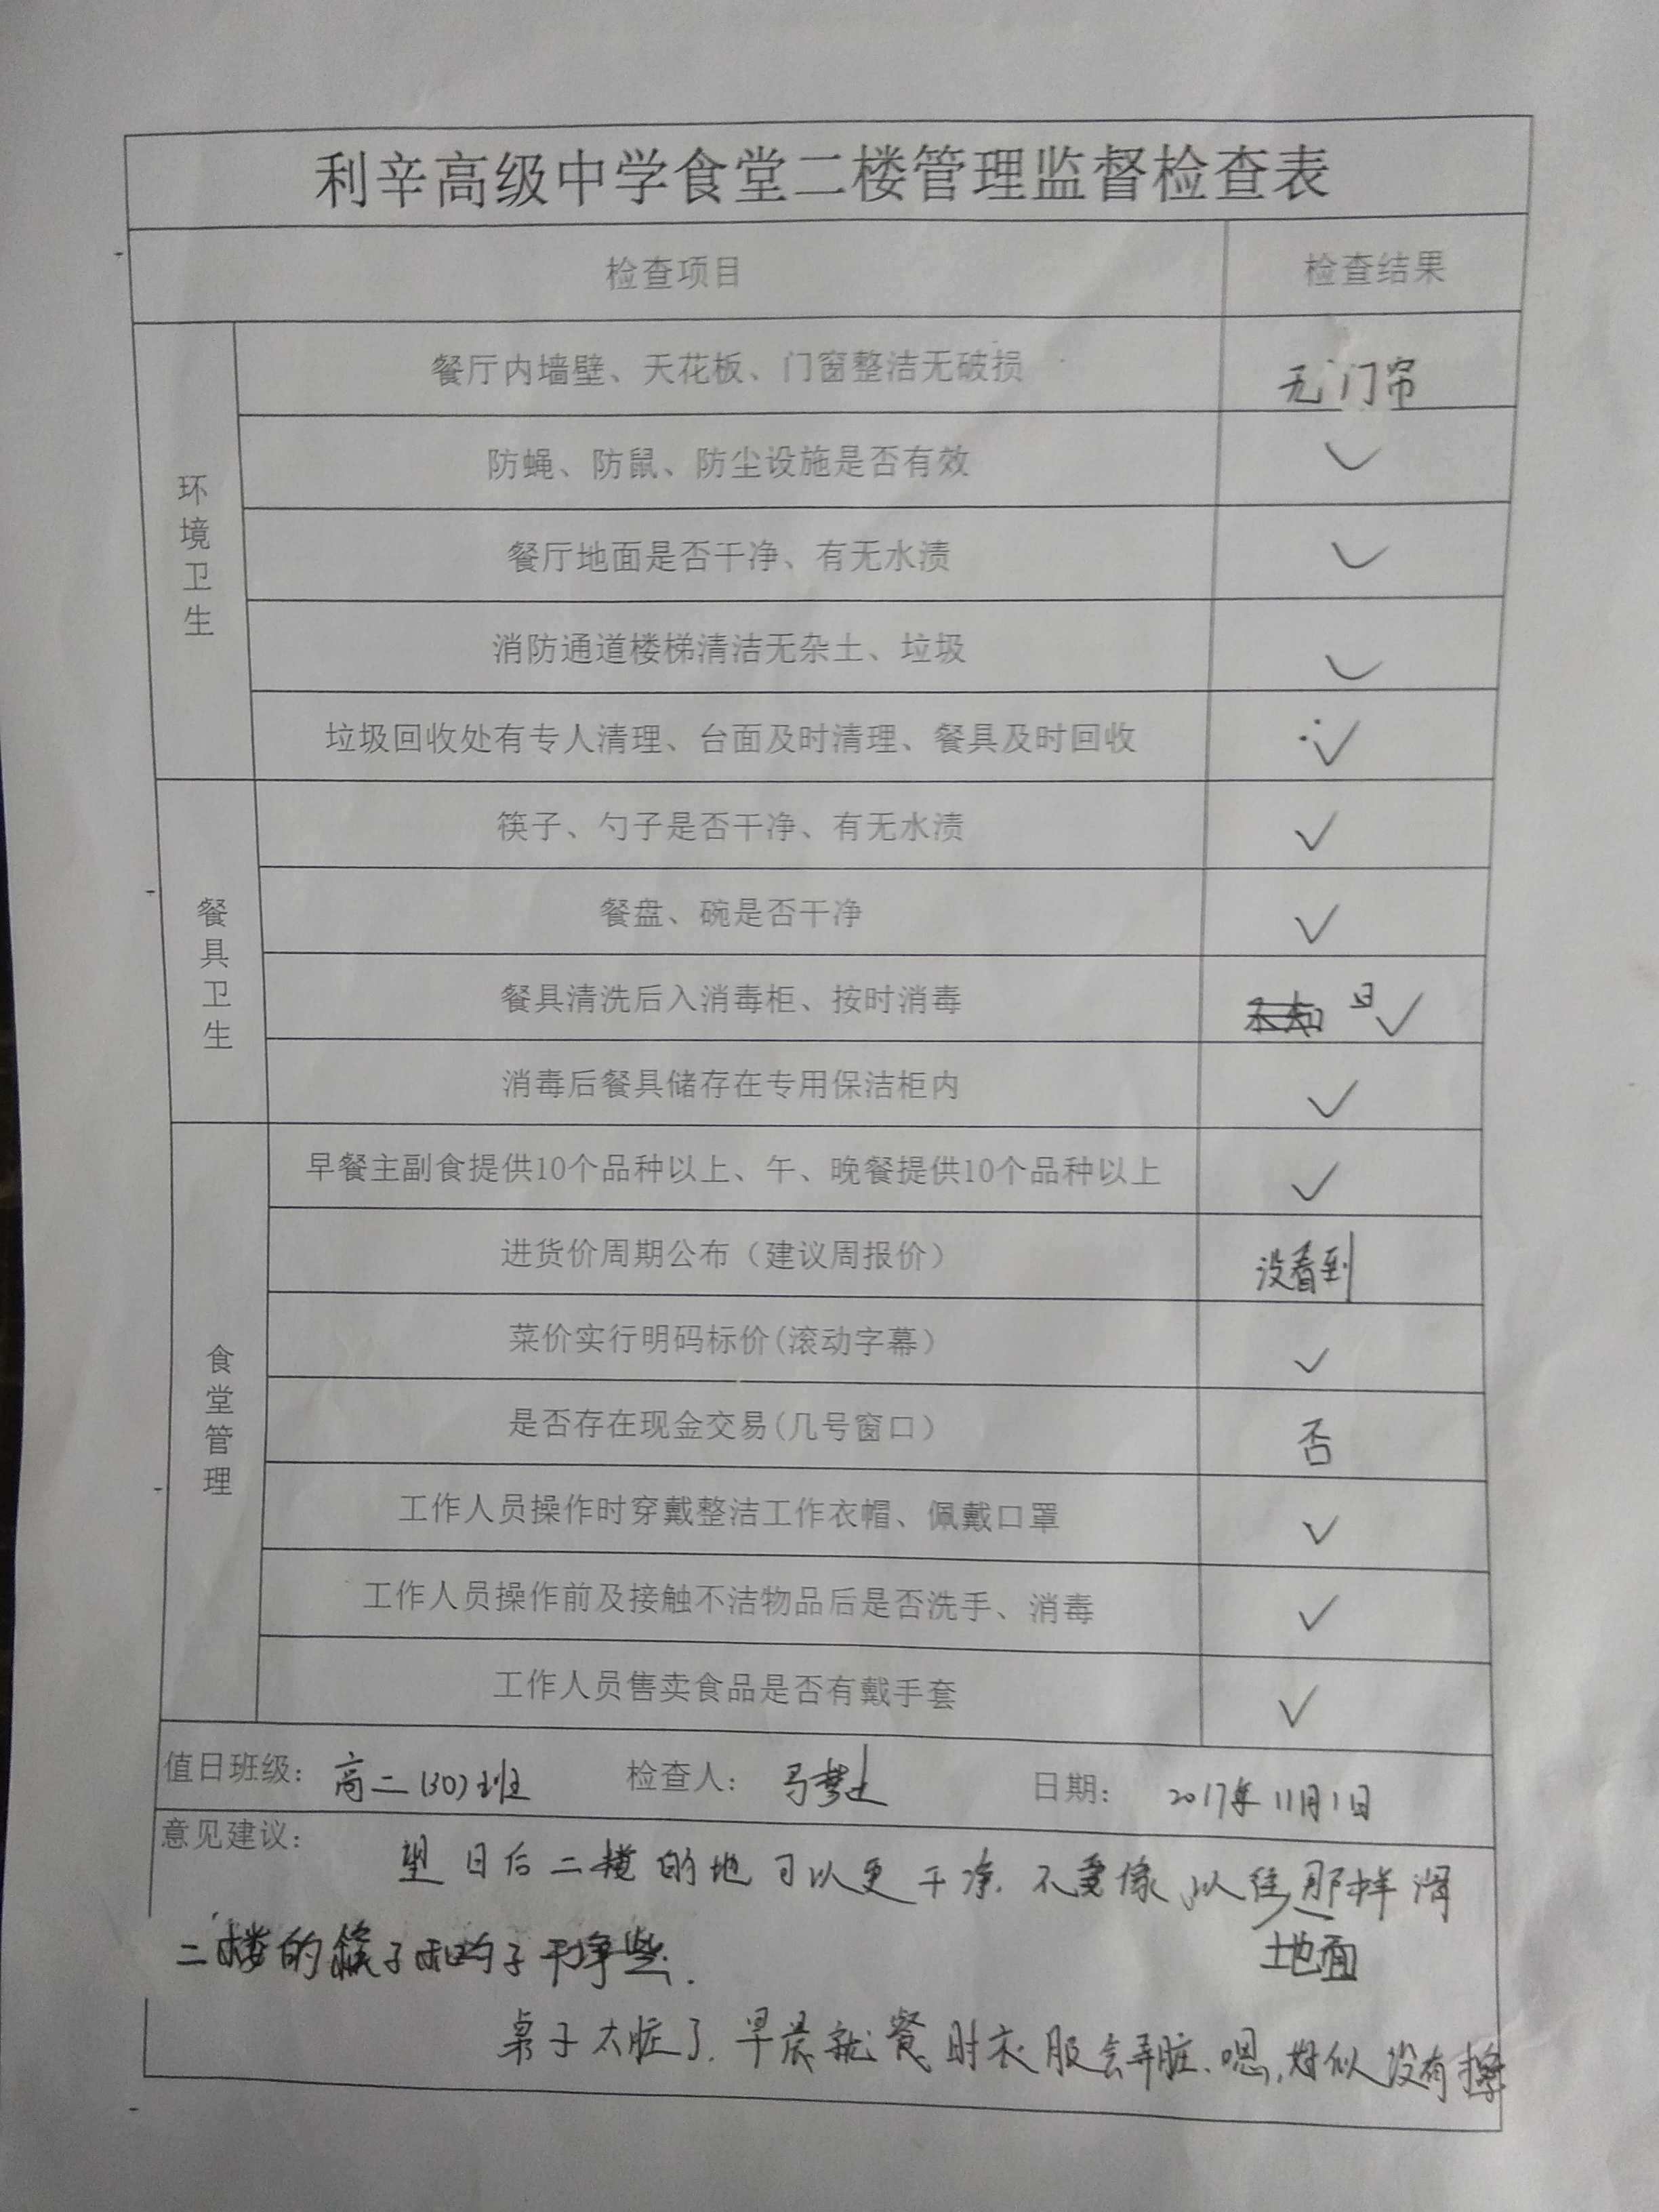 利辛高级中学食堂二楼管理监督检查表
检查项目 检查结果
环境卫生
餐厅内墙壁、天花板、门窗整洁无破损 无门帘
防蝇、防鼠、防尘设施是否有效 ✓
餐厅地面是否干净、有无水渍 ✓
消防通道楼梯清洁无杂土、垃圾 ✓
垃圾回收处有专人清理、台面及时清理、餐具及时回收 ✓
餐具卫生
筷子、勺子是否干净、有无水渍 ✓
餐盘、碗是否干净 ✓
餐具清洗后入消毒柜、按时消毒 ✓
消毒后餐具储存在专用保洁柜内 ✓
食堂管理
早餐主副食提供10个品种以上、午、晚餐提供10个品种以上 ✓
进货价周期公布（建议周报价） 没看到
菜价实行明码标价(滚动字幕） ✓
是否存在现金交易(几号窗口） 否
工作人员操作时穿戴整洁工作衣帽、佩戴口罩 ✓
工作人员操作前及接触不洁物品后是否洗手、消毒 ✓
工作人员售卖食品是否有戴手套 ✓
值日班级： 高二(30)班 检查人： 日期： 2017年11月1日
意见建议：
望日后二楼的地可以更干净.不要像以往那样滑
地面
二楼的筷子和勺子干净些.
桌子太脏了.早晨就餐时衣服会弄脏.嗯,好似没有擦